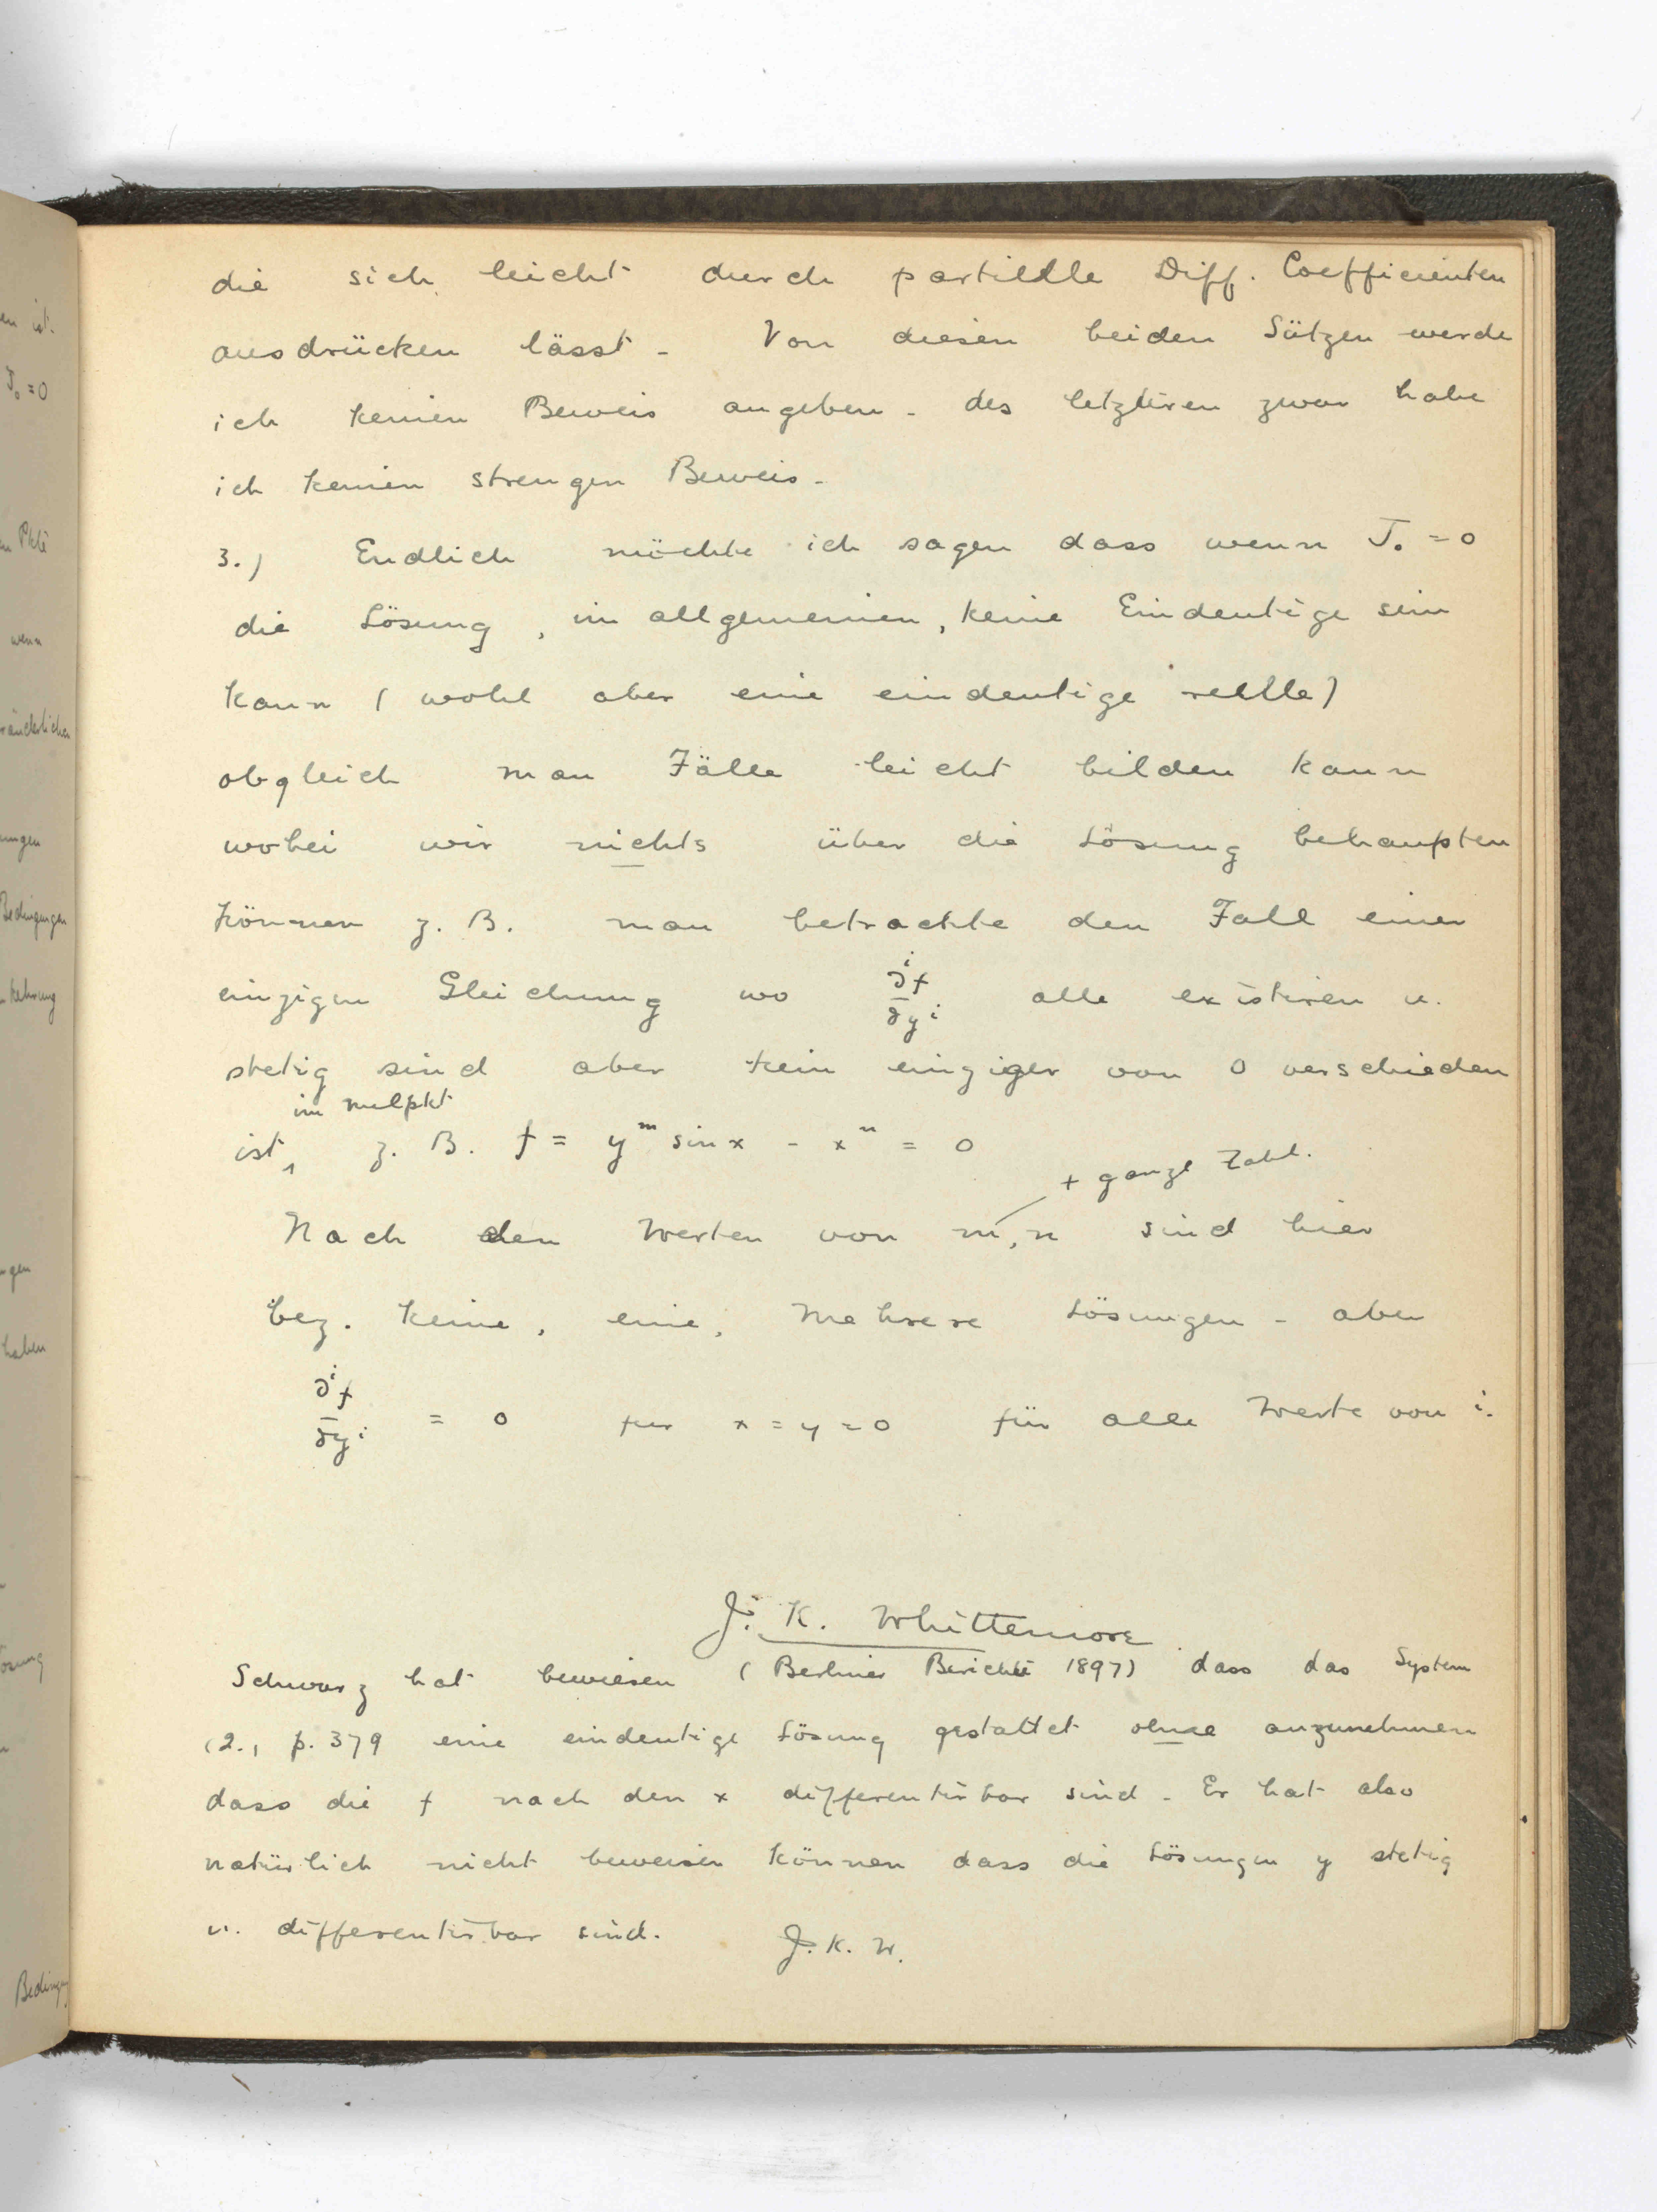 die sich leicht durch partielle Diff. Coefficienten
ausdrücken lässt. Von diesen beiden Sätzen werde
ich keinen Beweis angeben - des letzteren zwar habe
ich keinen strengen Beweis.
3.) Endlich möchte ich sagen dass wenn J₀ = 0
die Lösung, im allgemeinen, keine Eindeutige sein
kann (wohl aber eine eindeutige reelle)
obgleich man Fälle leicht bilden kann
wobei wir nichts über die Lösung behaupten
können z. B. man betrachte den Fall einer
einzigen Gleichung wo ∂ⁱf/∂yⁱ alle existiren u.
stetig sind aber kein einziger von 0 verschieden
im Nullpkt
ist, z. B. f = yᵐ sin x - xⁿ = 0
+ ganze Zahl.
Nach den Werten von m, n sind hier
bez. keine, eine, mehrere Lösungen - aber
∂ⁱf/∂yⁱ = 0 für x = y = 0 für alle Werte von i.
J. K. Whittemore
Schwarz hat bewiesen (Berliner Berichte 1897) dass das System
(2., p. 379 eine eindeutige Lösung gestattet ohne anzunehmen
dass die f nach den x differentiirbar sind. Er hat also
natürlich nicht beweisen können dass die Lösungen y stetig
u. differentiirbar sind. J. K. W.
en ist.
J₀ = 0
wenn
ränderlichen
ungen
Bedingungen
gen
haben
ösung